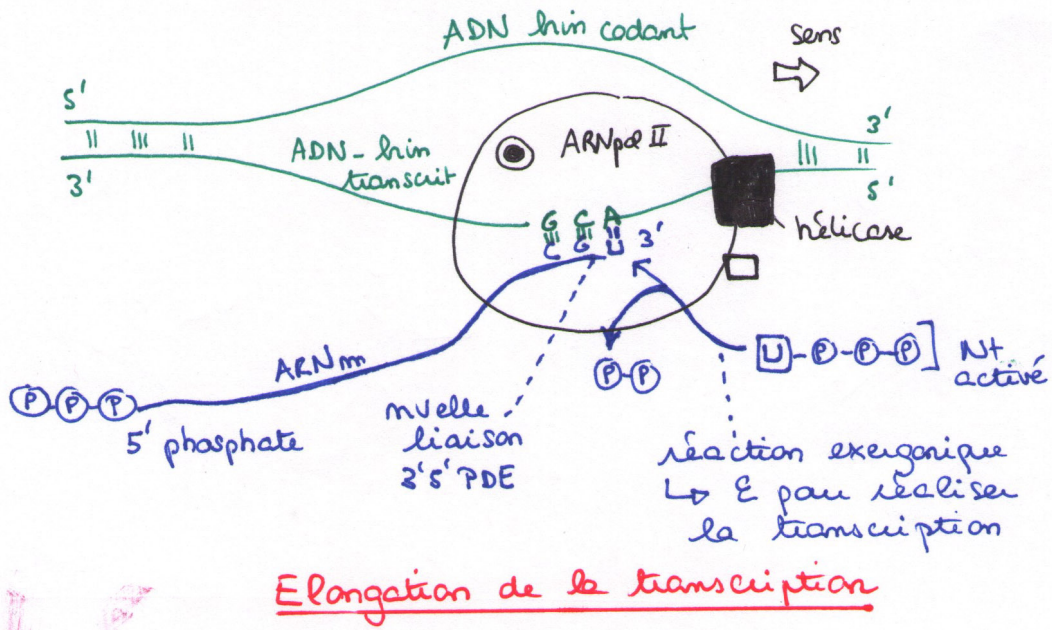 ADN brin codant
sens
5'
3'
ADN-brin
transcrit
ARNpol II
3'
5'
hélicase
G C A
C G U 3'
ARNm
P-P-P
5' phosphate
nvelle
liaison
3'5' PDE
P-P
U-P-P-P] Nt
activé
réaction exergonique
↳ E pour réaliser
la transcription
Elongation de la transcription